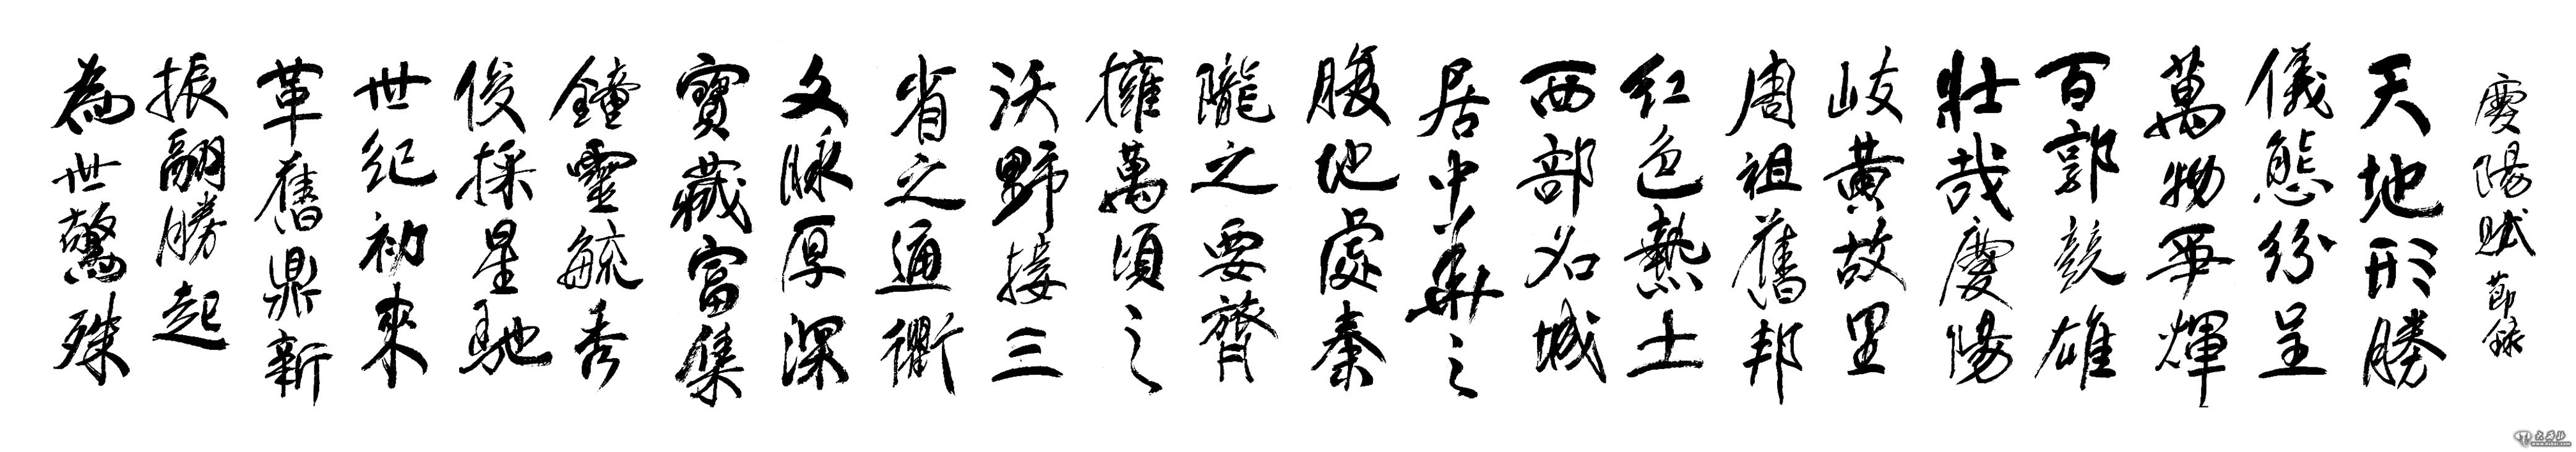 慶陽賦節錄
天地形勝
儀態紛呈
萬物爭輝
百郭競雄
壯哉慶陽
岐黃故里
周祖舊邦
紅色熱土
西部名城
居中華之
腹地處秦
隴之要膂
擁萬頃之
沃野接三
省之通衢
文脉厚深
寶藏富集
鐘靈毓秀
俊採星馳
世纪初來
革舊鼎新
振翮勝起
為世驚殊